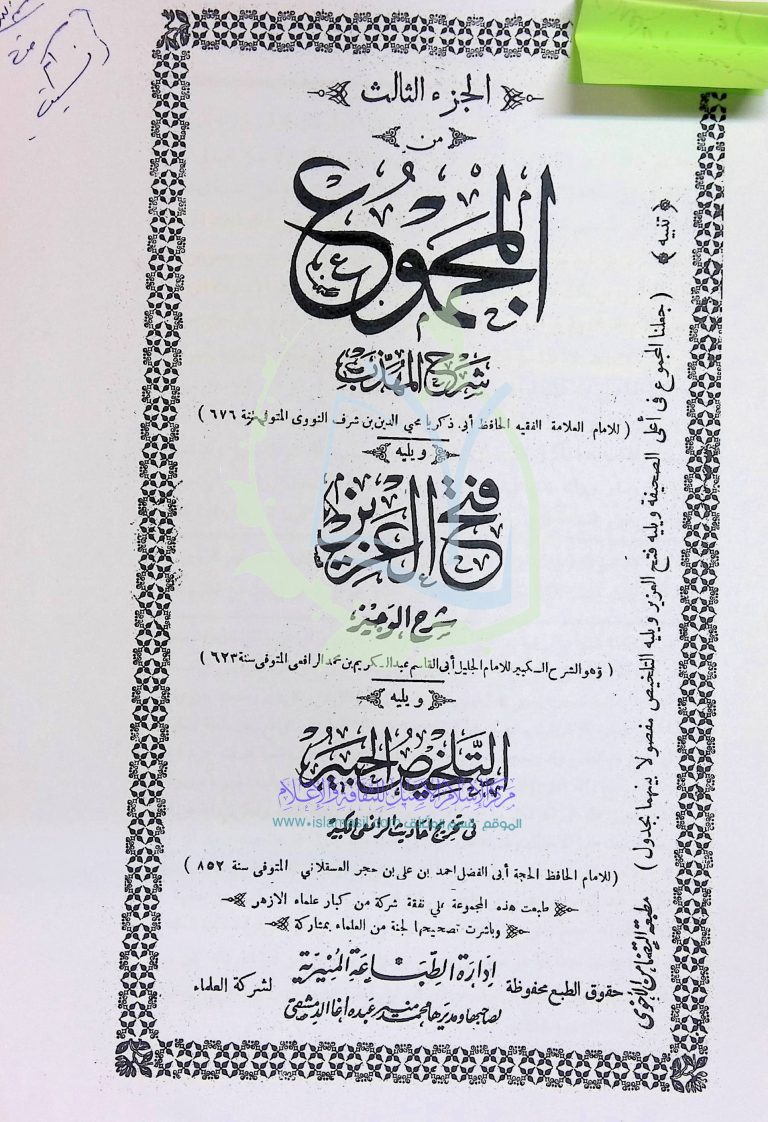 الجزء الثالث
من
المجموع
شرح المهذب
( للامام العلامة الفقيه الحافظ أبى زكريا محيى الدين بن شرف النووى المتوفى سنة ٦٧٦ )
ويليه
فتح العزيز
شرح الوجيز
( وهو الشرح الكبير للامام الجليل أبى القاسم عبد الكريم بن محمد الرافعى المتوفى سنة ٦٢٣ )
ويليه
التلخيص الحبير
فى تخريج أحاديث الرافعى الكبير
( للامام الحافظ الحجة أبى الفضل احمد بن على بن حجر العسقلاني المتوفى سنة ٨٥٢ )
طبعت هذه المجموعة على نفقة شركة من كبار علماء الازهر
وباشرت تصحيحها لجنة من العلماء بمشاركة
ادارة الطباعة المنيرية
حقوق الطبع محفوظة لشركة العلماء
لصاحبها ومديرها محمد منير عبده اغا الدمشقى
( تنبيه )
( جعلنا المجموع فى أعلى الصحيفة ويليه فتح العزيز ويليه التلخيص مفصولا بينهما بجدول )
مطبعة التضامن الأخوى
www.islamasil.com